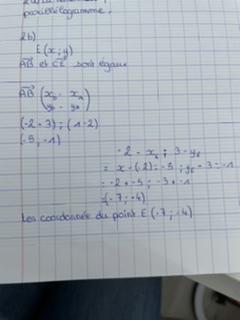 parallélogramme.
2b)
E(x;y)
AB et CE sont égaux
AB (xB - xA
yB - yA)
(-2-3);(1-2)
(-5;-1)
-2 - xc; 3-yc
= x-(-2)=-5; yE-3=-1
= -2+-5; -3+-1
=(-7;-4)
Les coordonnée du point E(-7;-4)